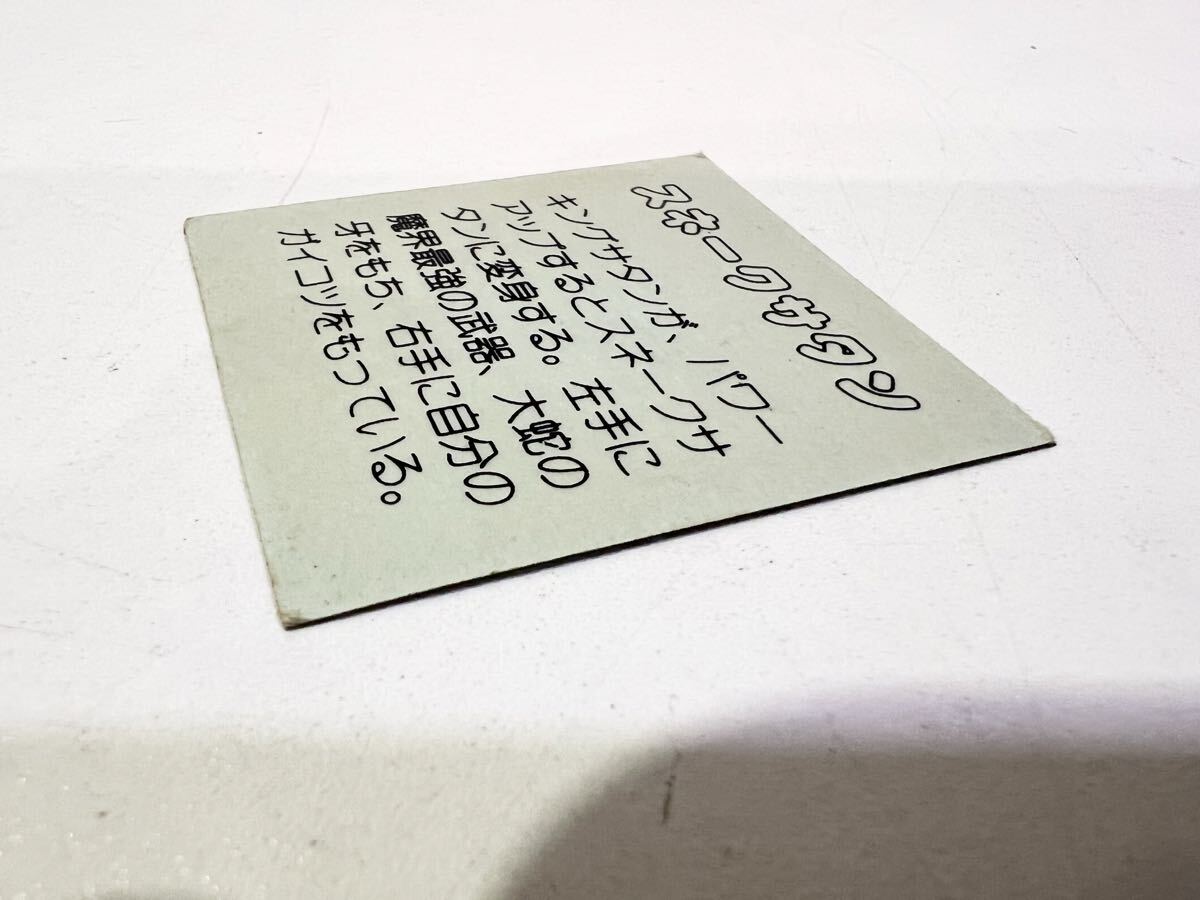 スネークサタン
キングサタンが、パワー
アップするとスネークサ
タンに変身する。左手に
魔界最強の武器、大蛇の
牙をもち、右手に自分の
ガイコツをもつている。